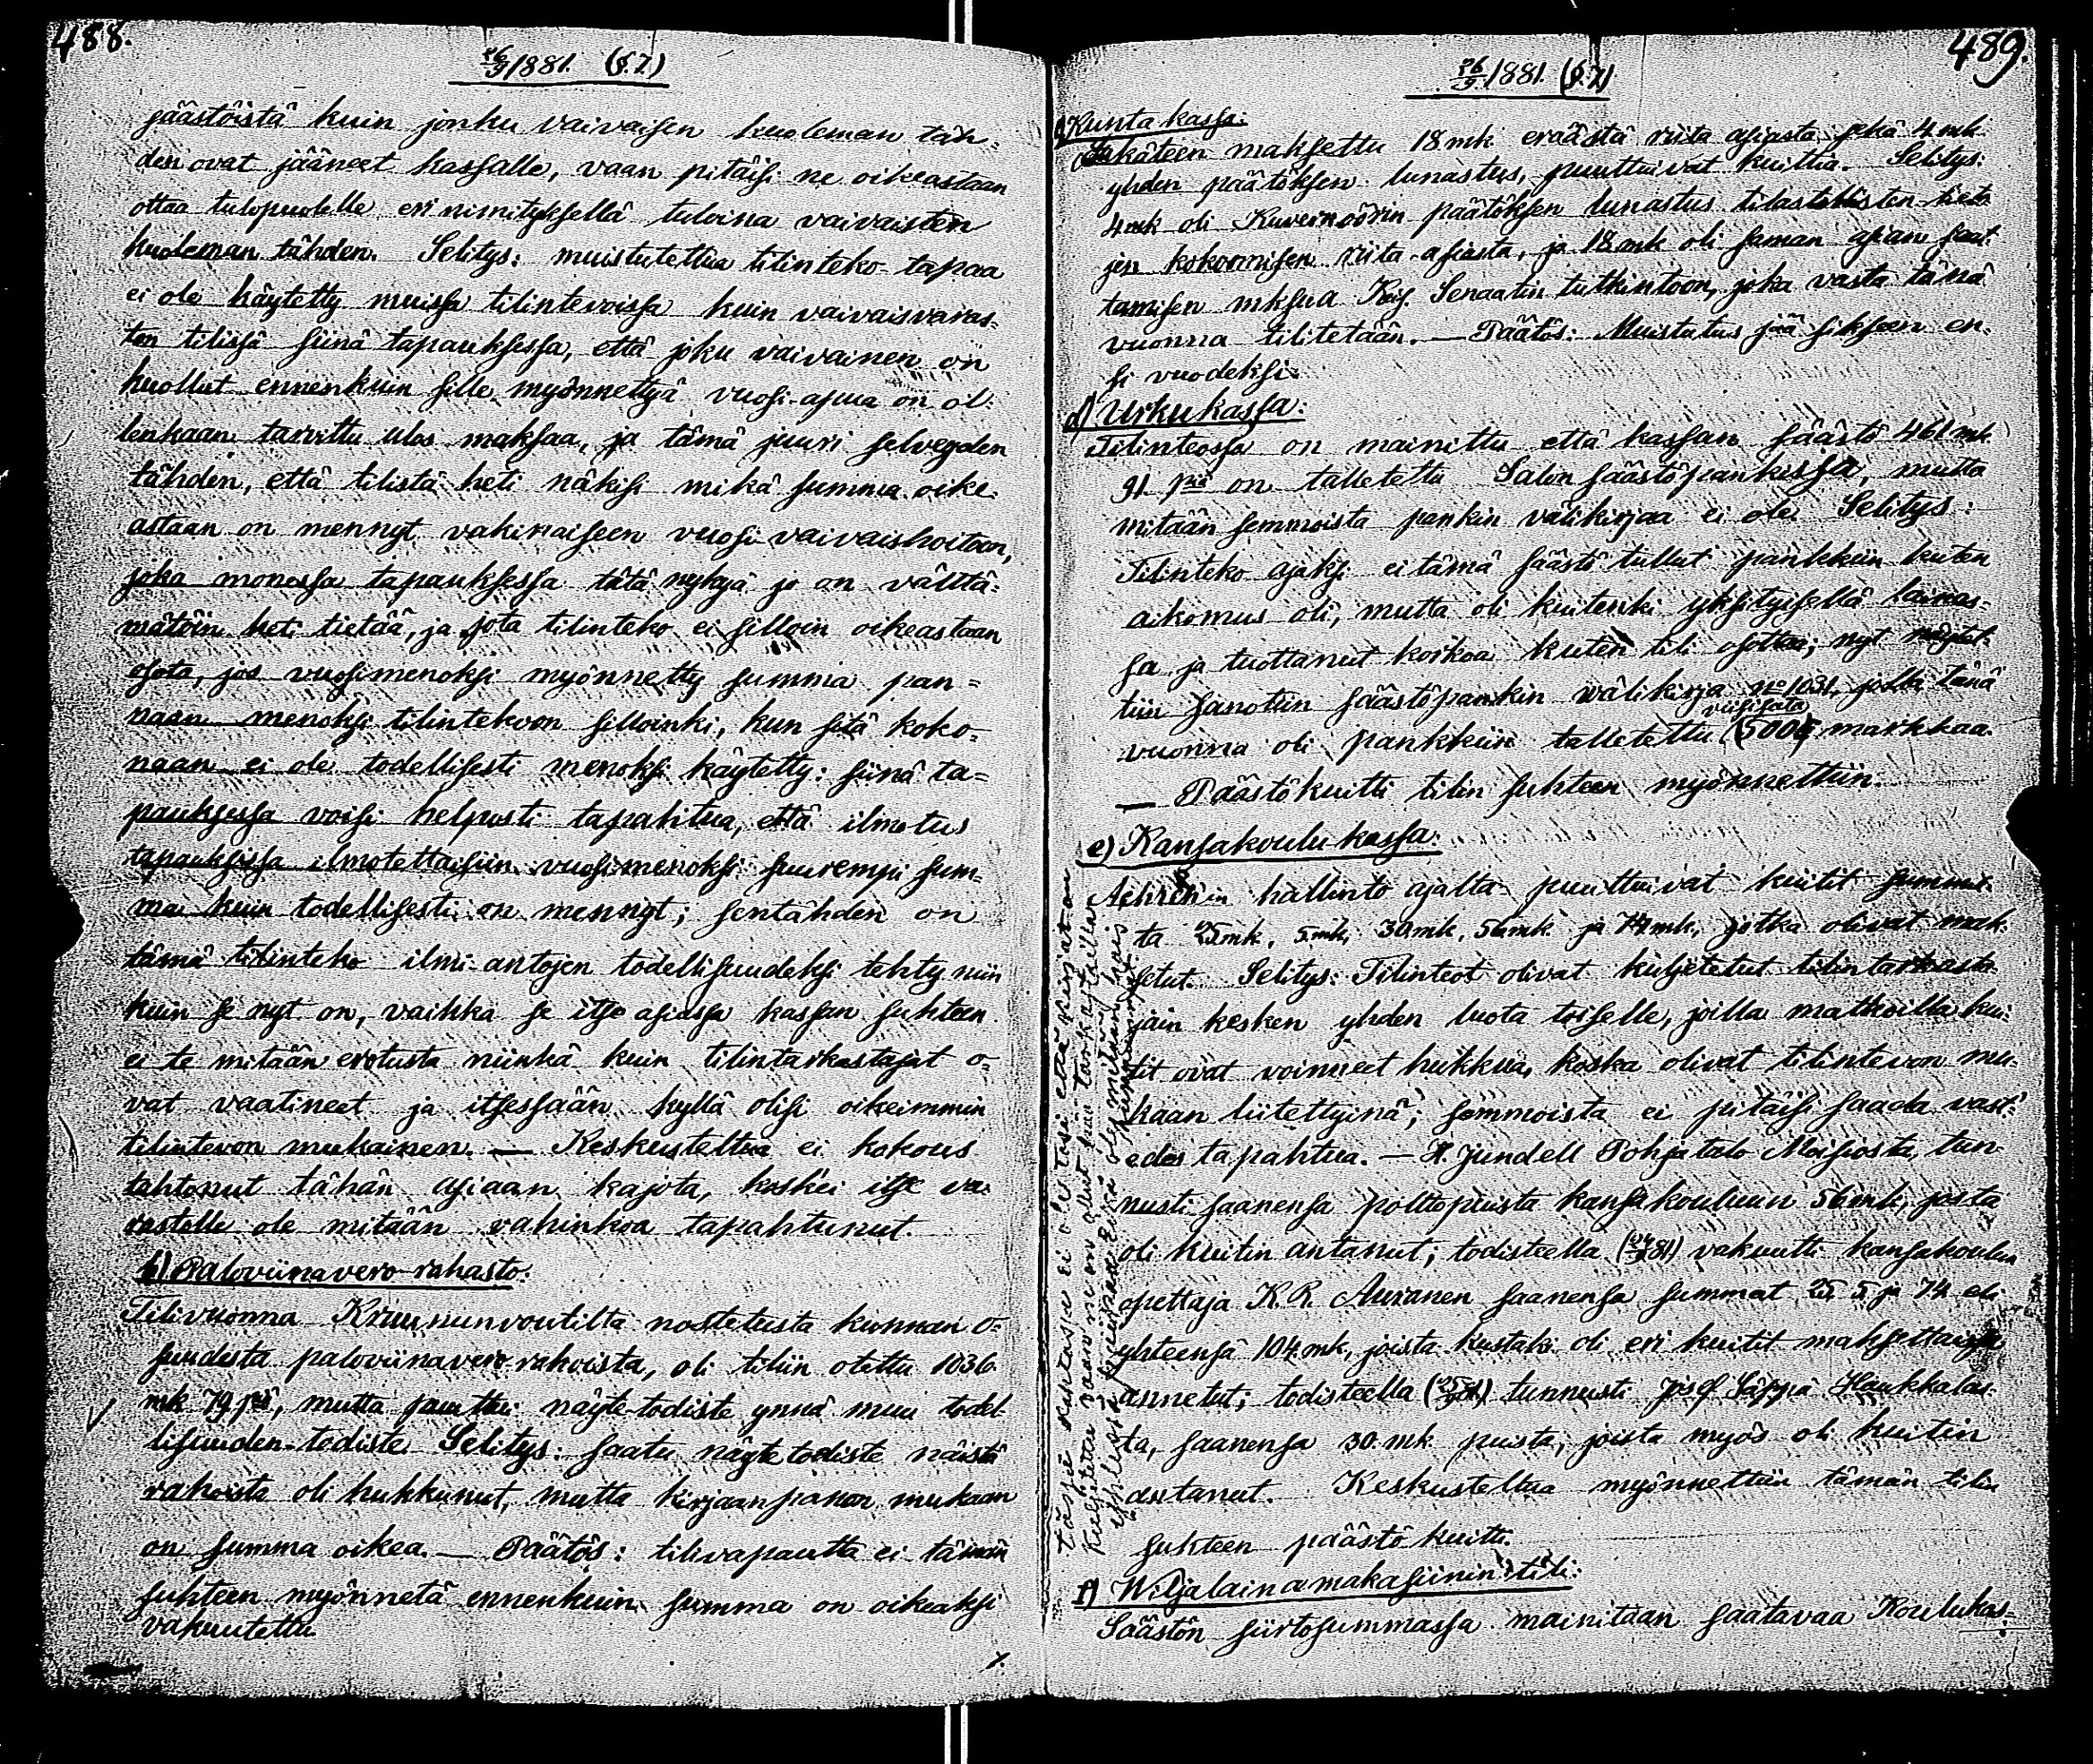 488.
26/9 1881. (§.7.)
säästöistä kuin jonku vaivaisen kuoleman täh-
den ovat jääneet kassalle, vaan pitäisi ne oikeastaan
ottaa tulopuolelle eri nimityksellä tuloina vaivaisten
kuoleman tähden. Selitys: muistutettua tilinteko-tapaa
ei ole käytetty muissa tilinteoissa kuin vaivaisvaras-
ton tilissä siinä tapauksessa, että joku vaivainen on
kuollut ennenkuin sille myönnettyä vuosi-apua on ol-
lenkaan tarvittu ulos maksaa, ja tämä juuri selveyden
tähden, että tilistä heti näkisi mikä summa oike-
astaan on mennyt vakinaiseen vuosi vaivaishoitoon,
joka monessa tapauksessa tätä nykyä jo on välttä-
mätöin heti tietää, ja jota tilinteko ei silloin oikeastaan
osota, jos vuosimenoksi myönnetty summa pan-
naan menoksi tilintekoon silloinki, kun sitä koko-
naan ei ole todellisesti menoksi käytetty: siinä ta-
pauksessa voisi helposti tapahtua, että ilmotus
tapauksissa ilmotettaisiin vuosimenoksi suurempi sum-
ma kuin todellisesti on mennyt; sentähden on
tämä tilinteko ilmi-antojen todellisuudeksi tehty niin
kuin se nyt on, vaikka se itse asiassa kassan suhteen
ei te mitään erotusta niinkä kuin tilintarkastajat o-
vat vaatineet ja itsessään kyllä olisi oikeimmin
tilinteon mukainen. — Keskusteltua ei kokous
tahtonut tähän asiaan kajota, koskei itse va-
rastolle ole mitään vahinkoa tapahtunut.
b) Paloviinavero-rahasto.
Tilivuonna Kruununvoutilta nostetusta kunnan o-
suudesta paloviinavero-rahoista, oli tiliin otettu 1036
mk 79 piä, mutta puuttui näyte-todiste ynnä muu todel-
lisuuden-todiste. Selitys: saatu näyte todiste näistä
rahoista oli hukkunut, mutta kirjaanpanon mukaan
on summa oikea. — Päätös: tilivapautta ei tämän
suhteen myönnetä ennenkuin summa on oikeaksi
vakuutettu
489.
26/9 1881. (§.7)
Kunta kassa:
käteen maksettu 18 mk eräästä riita asiasta sekä 4 mk
yhden päätöksen lunastus, puuttuivat kuittia. Selitys:
4 mk oli Kuvernöörin päätöksen lunastus tilastollisten tieto-
jen kokoomisen riita-asiasta, ja 18 mk oli saman asian saat-
tamisen mksua Keis. Senaatin tutkintoon, joka vasta tänä
vuonna tilitetään. — Päätös: Muistutus jää sikseen en-
si vuodeksi.
d) Urkukassa:
Tilinteossa on mainittu että kassan säästö 461 mk
91 piä on talletettu Salon säästöpankissa, mutta
mitään semmoista pankin välikirjaa ei ole. Selitys:
Tilinteko ajaksi ei tämä säästö tullut pankkiin kuten
aikomus oli, mutta oli kuitenki yksityisellä lainas-
sa ja tuottanut korkoa kuten tili osottaa; nyt näytet-
tiin sanottiin säästöpankin wälikirja no 1031, jolla tänä
vuonna oli pankkiin talletettu (500) viisisata markkaa.
— Päästökuitti tilin suhteen myönnettiin.
e) Kansakoulu kassa:
hallinto ajalta puuttuivat kuitit summis-
ta 25 mk, 5 mk, 30 mk, 56 mk ja 74 mk, jotka olivat mak-
setut. Selitys: Tilinteot olivat kuljetetut tilintarkasta-
jain kesken yhden luota toiselle, joilla matkoilla kui-
tit ovat voineet hukkua, koska olivat tilinteon mu-
kaan liitettyinä; semmoista ei pitäisi saada vast'-
edes tapahtua. — H. Jundell Pohjatalo Moisiosta, tun-
nusti saanensa polttopuista kansakouluun 56 mk, josta
oli kuitin antanut; todisteella vakuutti kansakoulun
opettaja K. R. Auranen saanensa summat 25, 5 ja 74 eli
yhteensä 104 mk, joista kustaki oli eri kuitit maksettaissa
annetut; todisteella tunnusti Josef Säppä Haukkalas-
ta, saanensa 30 mk puista, joista myös oli kuitin
antanut. Keskusteltua myönnettiin tämän tilin
suhteen päästö kuitti.
f) Wiljalainamakasiinin tili:
Säästön siirtosummassa mainitaan saatavaa Koulukas-